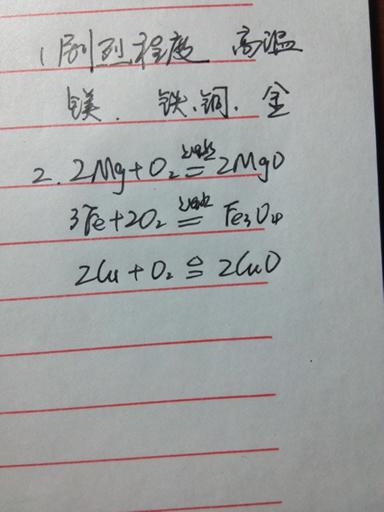 1剧烈程度 高温
镁. 铁.铜. 金
2. 2Mg+O₂ 点燃= 2MgO
3Fe+2O₂ 点燃= Fe₃O₄
2Cu+O₂ △= 2CuO